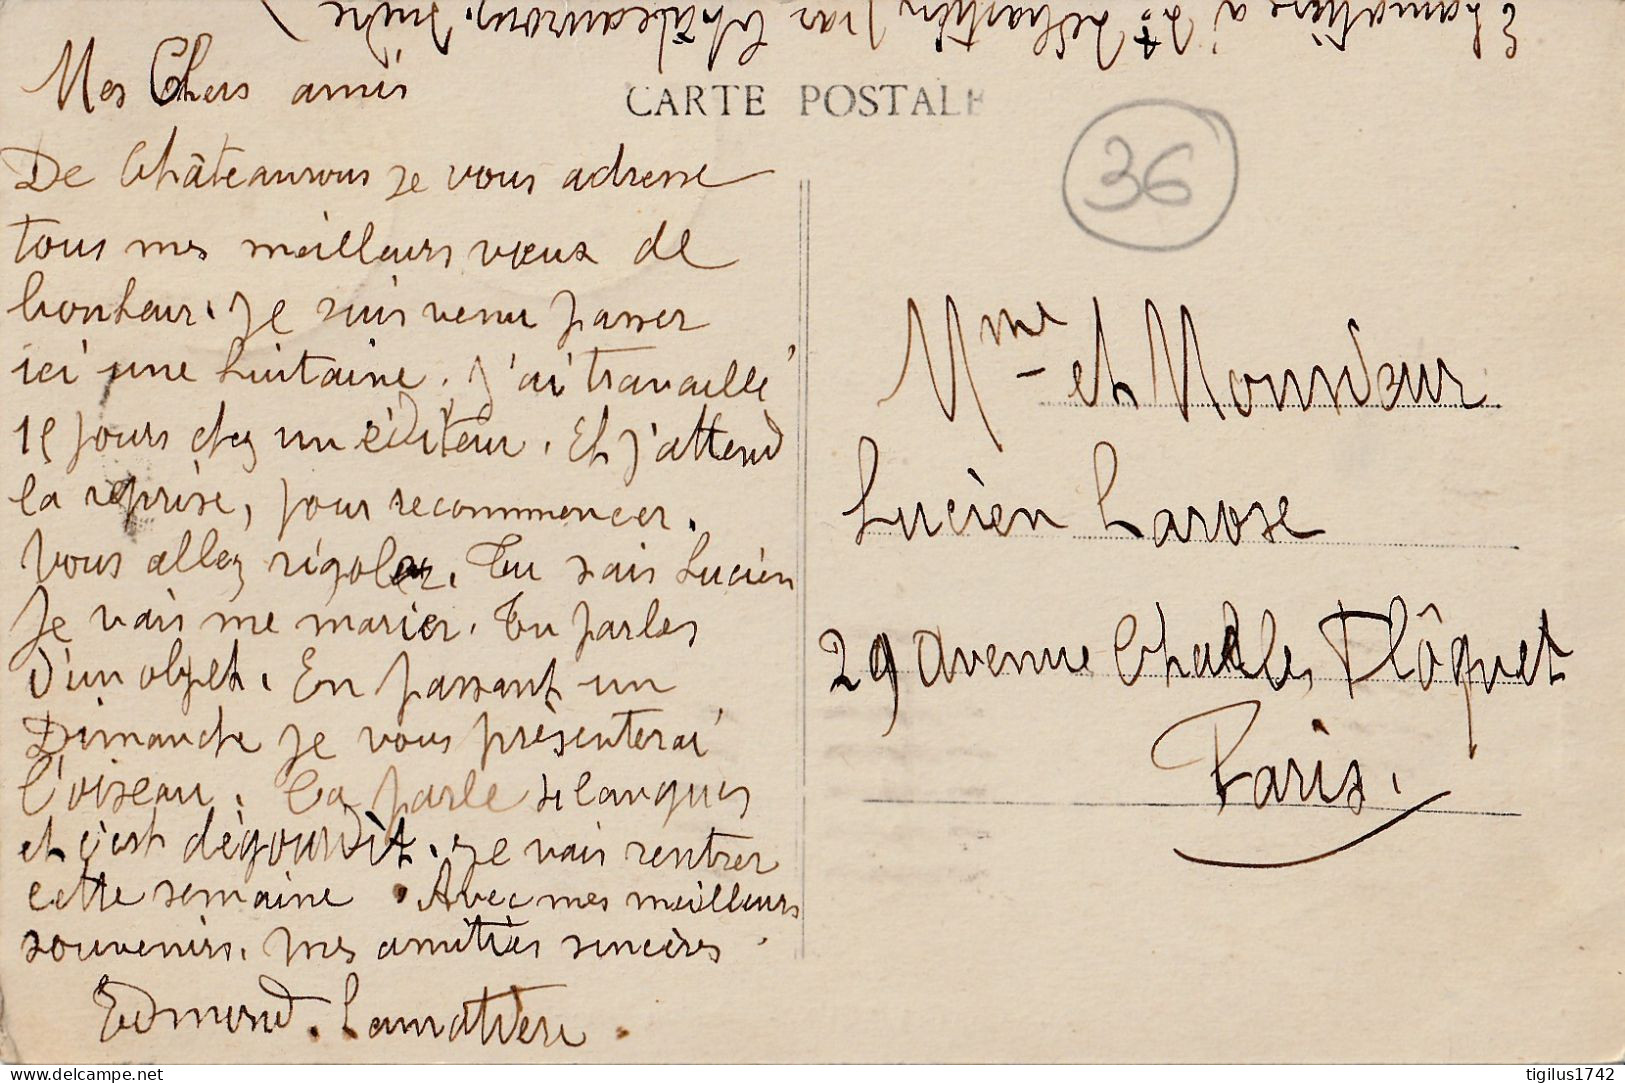 Mes Chers amis
De Châteauroux je vous adresse
tous mes meilleurs vœux de
bonheur. Je suis venu passer
ici une huitaine. J'ai travaillé
15 jours chez un éditeur. Et j'attend
la reprise, pour recommencer.
Vous allez rigoler. Tu sais Lucien
Je vais me marier. Tu parles
d'un objet. En passant un
Dimanche je vous présenterai
l'oiseau. Ca parle langues
et c'est dégourdit. Je vais rentrer
cette semaine. Avec mes meilleurs
souvenirs. mes amitiés sincères.
Edmond. Lamatière.
à St Sébastien par Châteauroux. Indre
CARTE POSTALE
36
Mme et Monsieur
Lucien Larose
29 avenue Charles Flôquet
Paris.
delcampe.net
tigilus1742